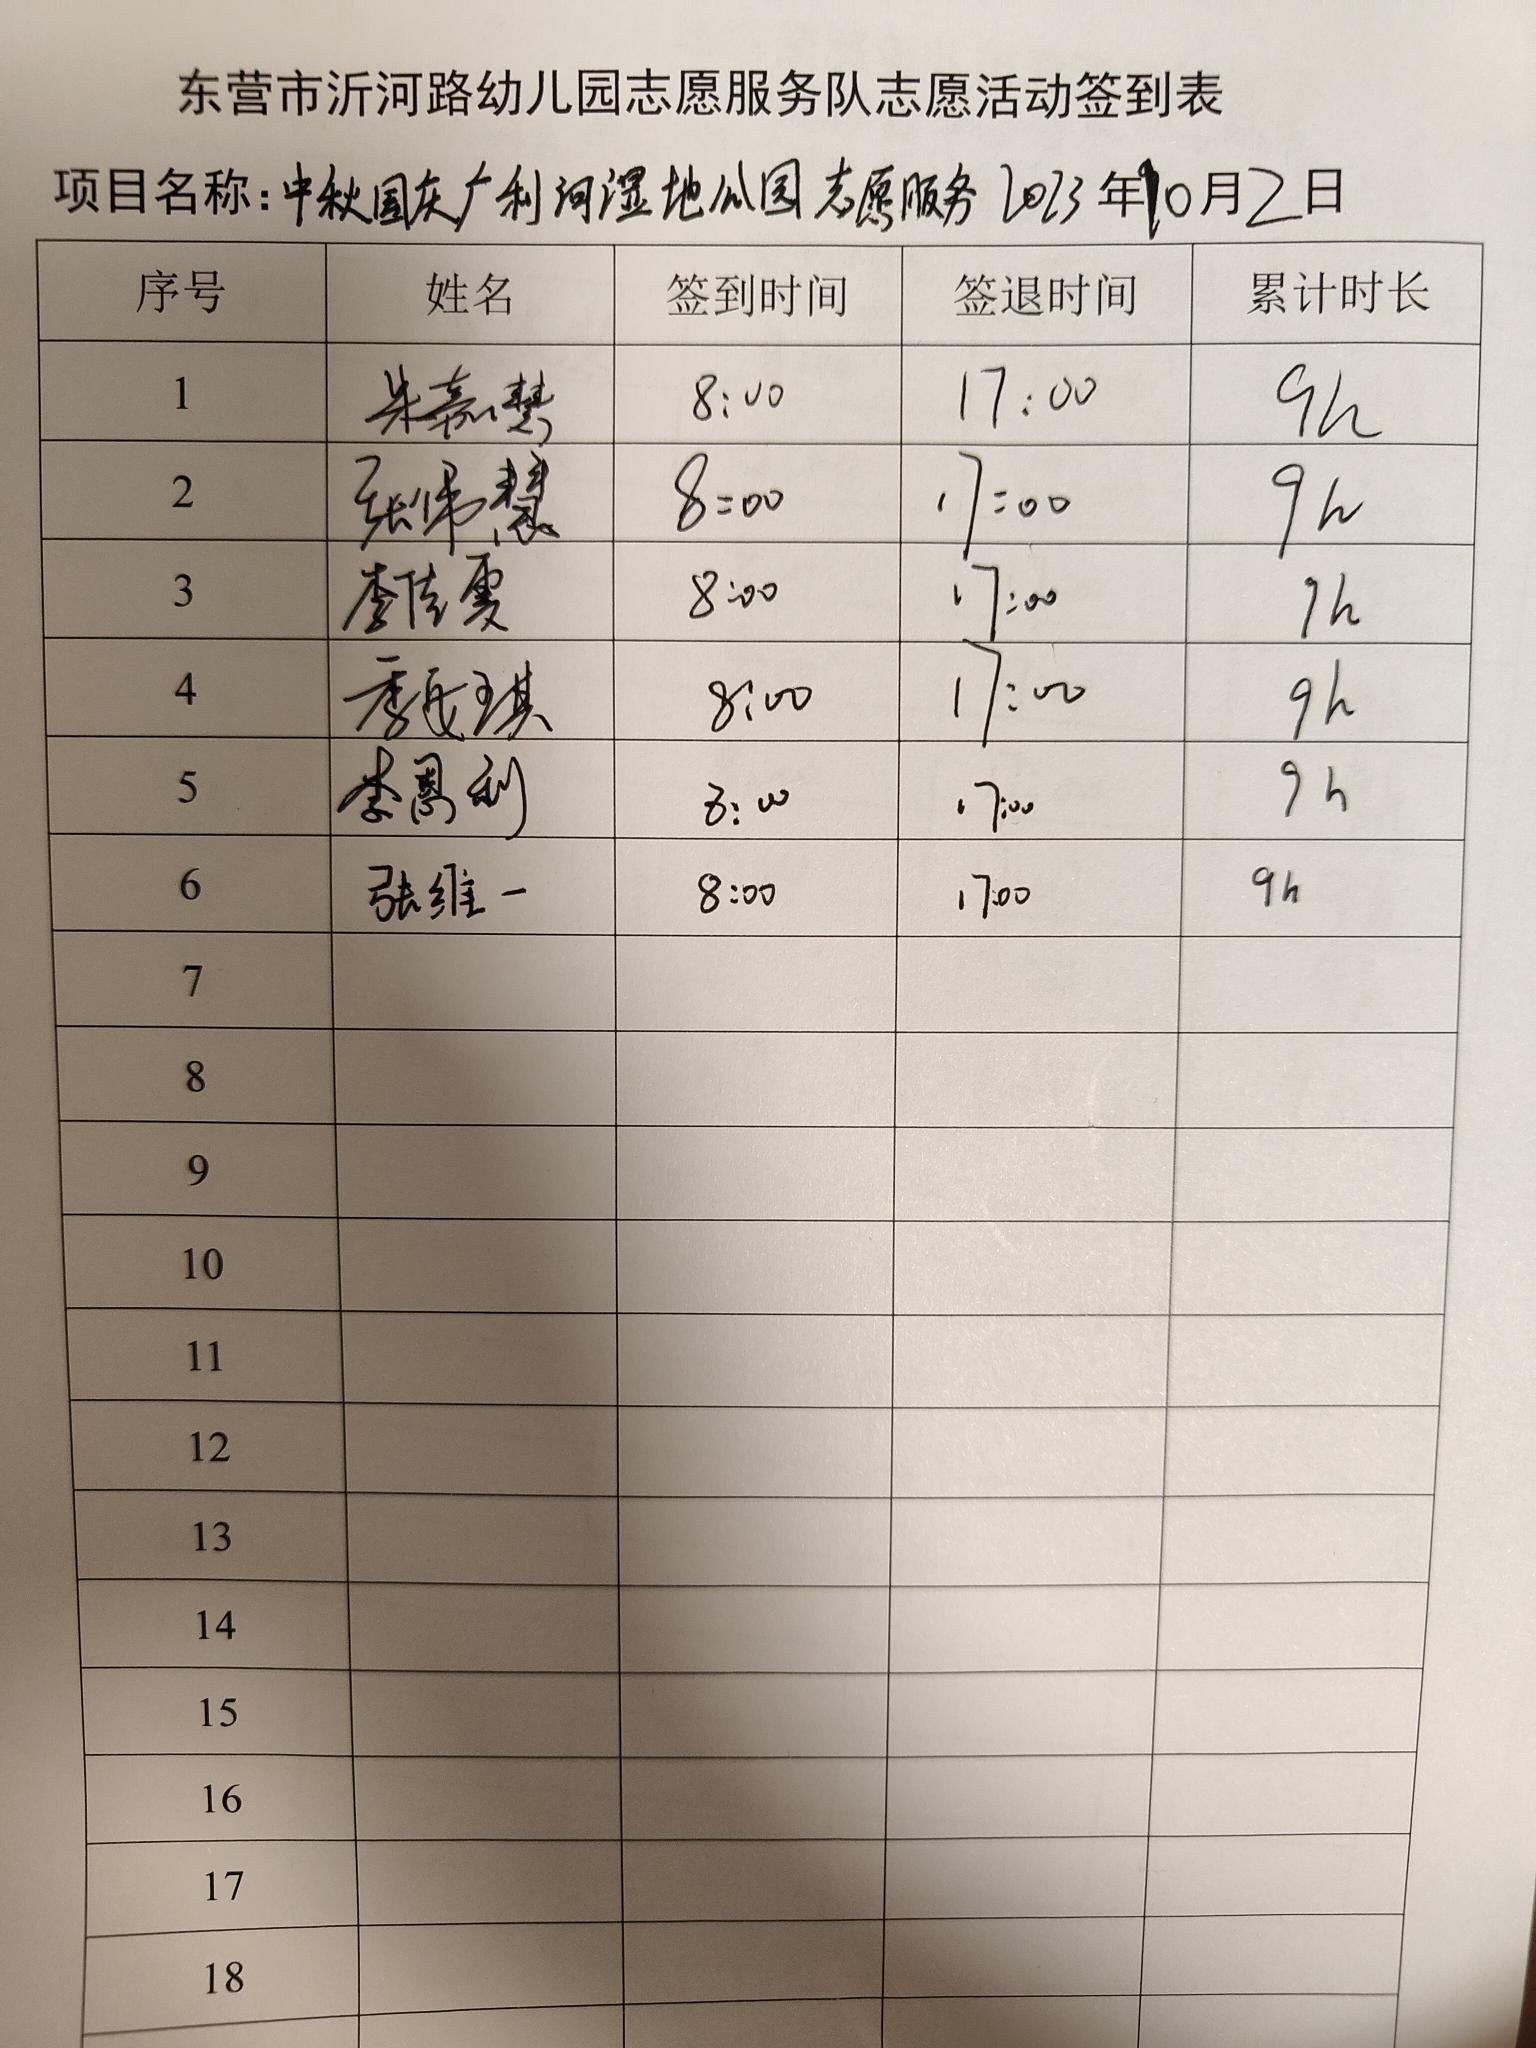 东营市沂河路幼儿园志愿服务队志愿活动签到表
项目名称:中秋国庆广利河湿地公园志愿服务 2023年10月2日
序号 姓名 签到时间 签退时间 累计时长
1 朱嘉慧 8:00 17:00 9h
2 张伟慧 8:00 17:00 9h
3 李佳雯 8:00 17:00 9h
4 季 琪 8:00 17:00 9h
5 李恩利 8:00 17:00 9h
6 张维一 8:00 17:00 9h
7
8
9
10
11
12
13
14
15
16
17
18